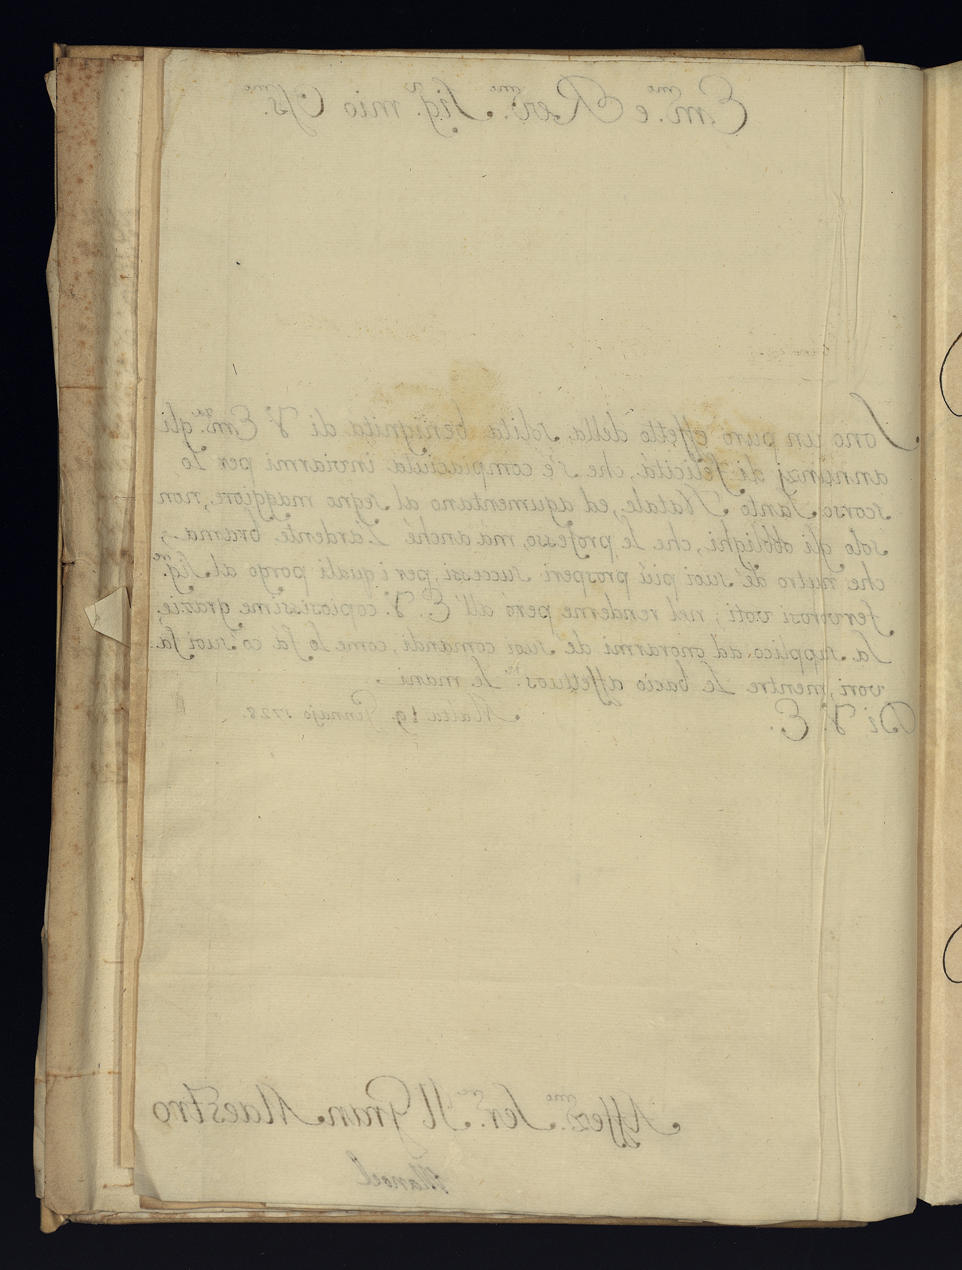 Em.mo e Rev.mo Sig.r mio Oss.mo
Sono un puro effetto della solita benignità di V. Em.za gli
annunzj di felicità, che s'è compiaciuta inviarmi per lo
scorso Santo Natale, ed agumentano al segno maggiore, non
solo gli obblighi, che le professo, mà anché l'ardente brama,
che nutro de' suoi più prosperi successi, per i quali porgo al Sig.re
fervorosi voti; nel renderne però all' E. V. copiosissime grazie,
la supplico ad onorarmi de suoi comandi, come lo fà co' suoi fa
vori, mentre le bacio affettuos.te le mani.
Di V. E. Malta 19. Gennajo 1728.
Affez.mo Ser.re Il Gran Maestro
Manoel